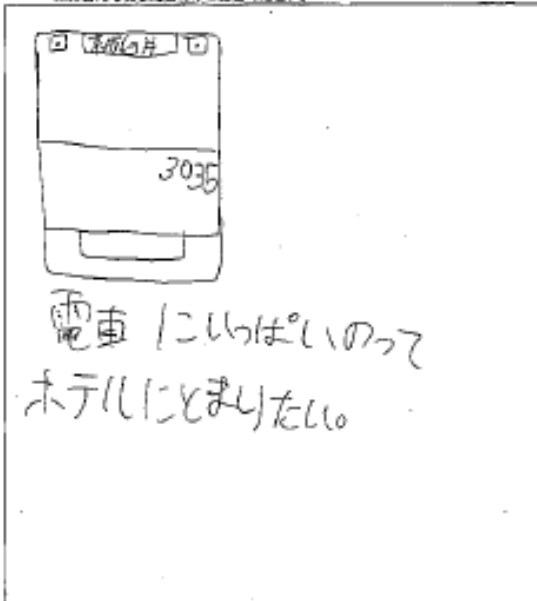 3035
電車にいっぱいのって
ホテルにとまりたい。